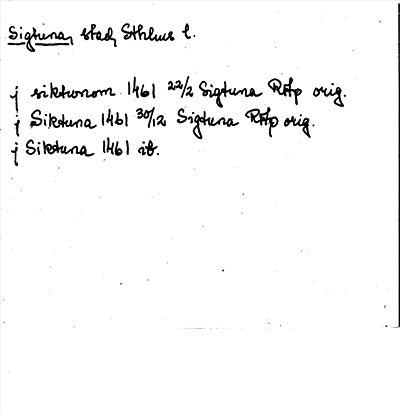 Sigtuna, stad, Sthlms l.
j siktunom 1461 22/2 Sigtuna RAp orig.
j Siktuna 1461 30/12 Sigtuna RAp orig.
j Siktuna 1461 ib.